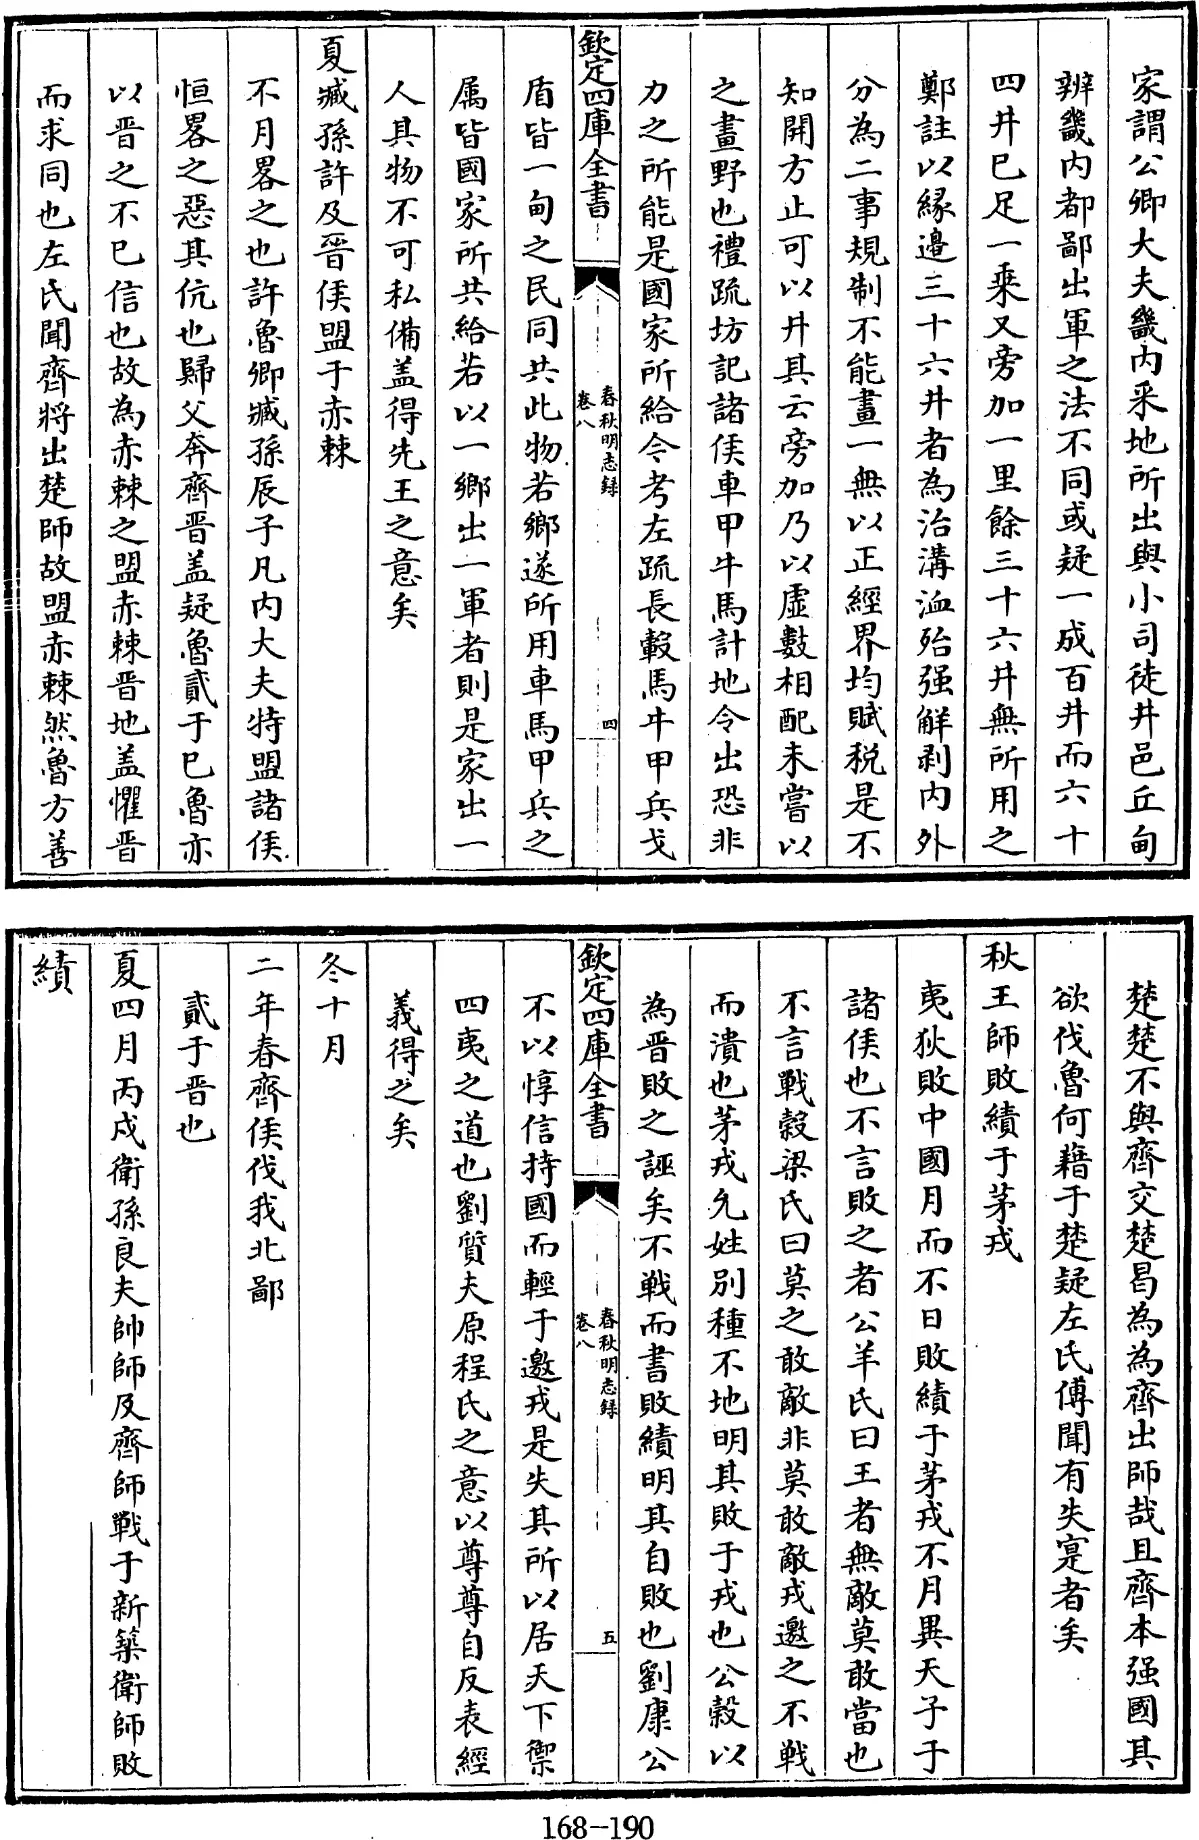 家謂公卿大夫畿内采地所出與小司徒井邑丘甸
辨畿内都鄙出軍之法不同或疑一成百井而六十
四井已足一乗又旁加一里餘三十六井無所用之
鄭註以縁邉三十六井者為治溝洫殆强解剥内外
分為二事規制不能畫一無以正經界均賦税是不
知開方止可以井其云旁加乃以虚數相配未嘗以
之畫野也禮疏坊記諸侯車甲牛馬計地令出恐非
力之所能是國家所給今考左疏長轂馬牛甲兵戈
欽定四庫全書
春秋明志録
卷八
四
盾皆一甸之民同共此物若鄉遂所用車馬甲兵之
属皆國家所共給若以一鄉出一軍者則是家出一
人其物不可私備盖得先王之意矣
夏臧孫許及晉侯盟于赤棘
不月畧之也許魯卿臧孫辰子凡内大夫特盟諸侯
恒畧之惡其伉也歸父奔齊晉盖疑魯貳于已魯亦
以晉之不已信也故為赤棘之盟赤棘晉地盖懼晉
而求同也左氏聞齊将出楚師故盟赤棘然魯方善
楚楚不與齊交楚曷為為齊出師哉且齊本强國其
欲伐魯何藉于楚疑左氏傳聞有失寔者矣
秋王師敗績于茅戎
夷狄敗中國月而不日敗績于茅戎不月異天子于
諸侯也不言敗之者公羊氏曰王者無敵莫敢當也
不言戰榖梁氏曰莫之敢敵非莫敢敵戎邀之不戦
而潰也茅戎允姓別種不地明其敗于戎也公榖以
為晉敗之誣矣不戦而書敗績明其自敗也劉康公
欽定四庫全書
春秋明志録
卷八
五
不以惇信持國而輕于邀戎是失其所以居天下禦
四夷之道也劉質夫原程氏之意以尊尊自反表經
義得之矣
冬十月
二年春齊侯伐我北鄙
貳于晉也
夏四月丙戌衛孫良夫帥師及齊師戰于新築衛師敗
績
168-190